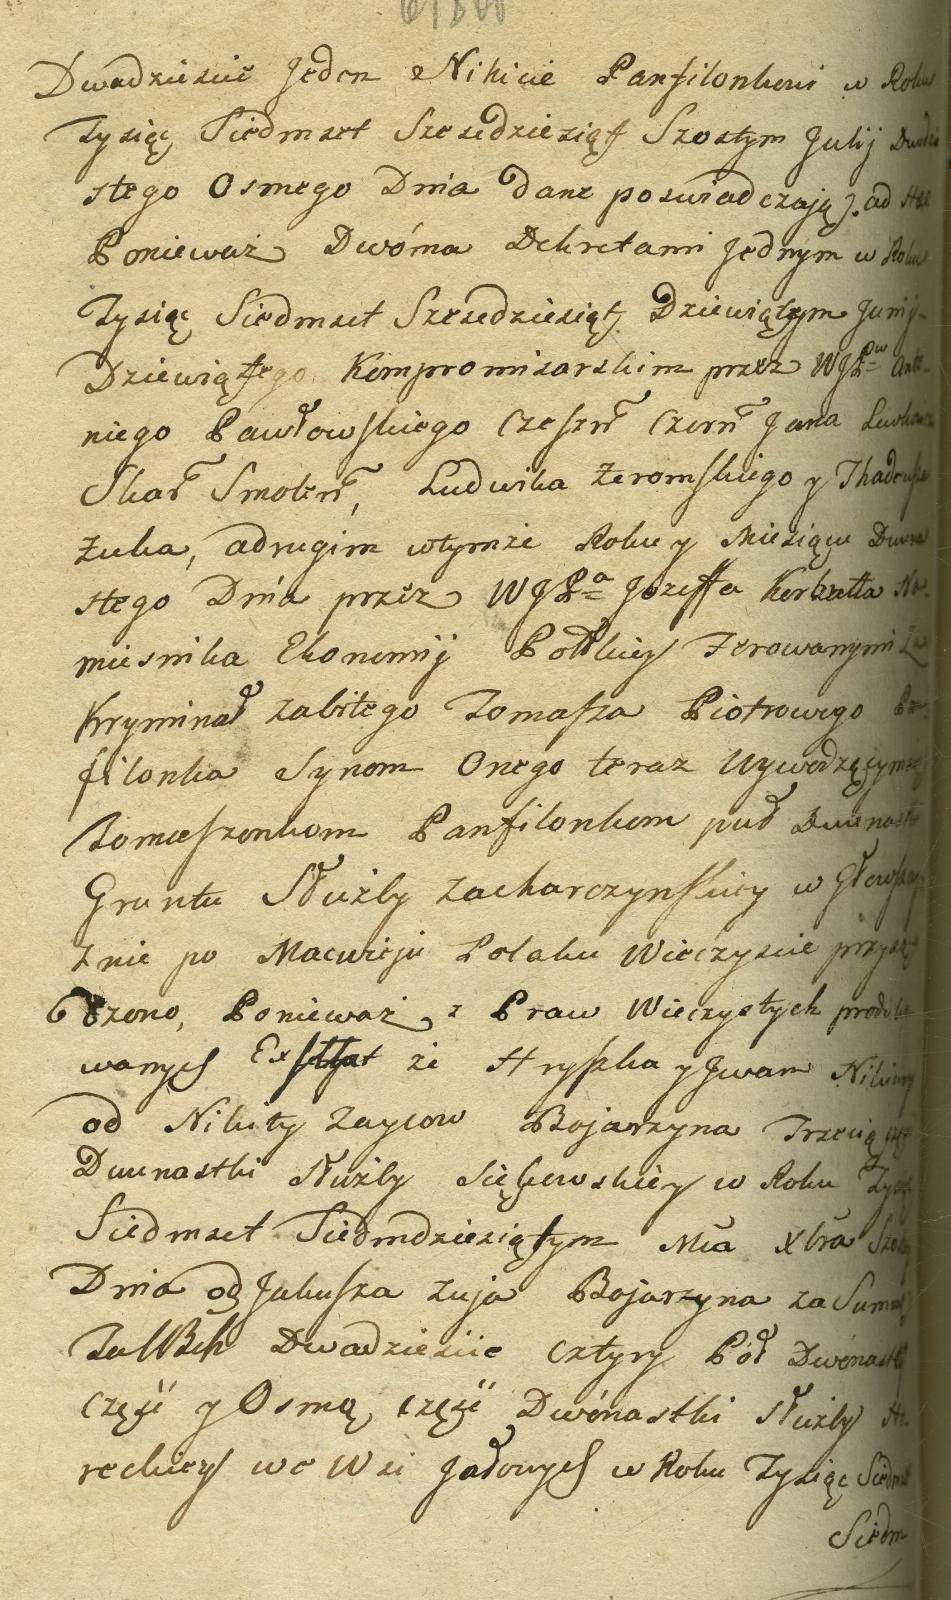 Dwadziescie Jeden Nikicie Panfilonkowi w Roku
Tysiąc Siedmset Szescdziesiąt Szostym Julij Dwudzie
stego Osmego Dnia dane poswiadczają). ad
Ponieważ Dwóma Dekretami Jednym w Roku
Tysiąc Siedmset Szescdziesiąt Dziewiątym Junij
Dziewiątego Kompromisarskim przez WJP Anto-
niego Pawłowskiego Czeszn Czern Jana
Skar Smolen, Ludwika Żeromskiego y Thadeusza
Żuka, adrugim wtymże Roku y Miesiącu Duna
stego Dnia przez WJPa Jozeffa Korkutta Na-
miesnika Ekonomij Połłkiey Ferowanymi Za
Kryminał zabitego Tomasza Piotrowego
filonka Synom Onego teraz Uywodzącymsię
Tomaszonkom Panfilonkom puł Dwunastki
Gruntu Służby Zacharczynskiey w
znie po Macwieju Polaku Wieczyscie przysą
6 dzono, Ponieważ z Praw Wieczystych produko
wanych że Hryszka y Jwan
od Nikity Zaycow Bojarzyna Trzecią
Dwunastki Służby w Roku Tysiąc
Siedmset Siedmdziesiątym Mca Xbra
Dnia od Jakusza Zuja Bojarzyna za Summę
Dwadziescie cztyry Pół Dwónastki
częsć y Osmą częsć Dwónastki Służby
reckiey we Wsi Jałowych w Roku Tysiąc Siedmset
Siedm